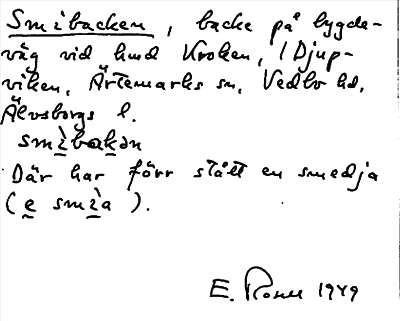 Smibacken, backe på bygde-
väg vid hmd Kroken, i Djup-
viken, Ärtemarks sn, Vedbo hd,
Älvsborgs l.
smìbakən
Där har förr stått en smedja
(e smìa).
E. 1949